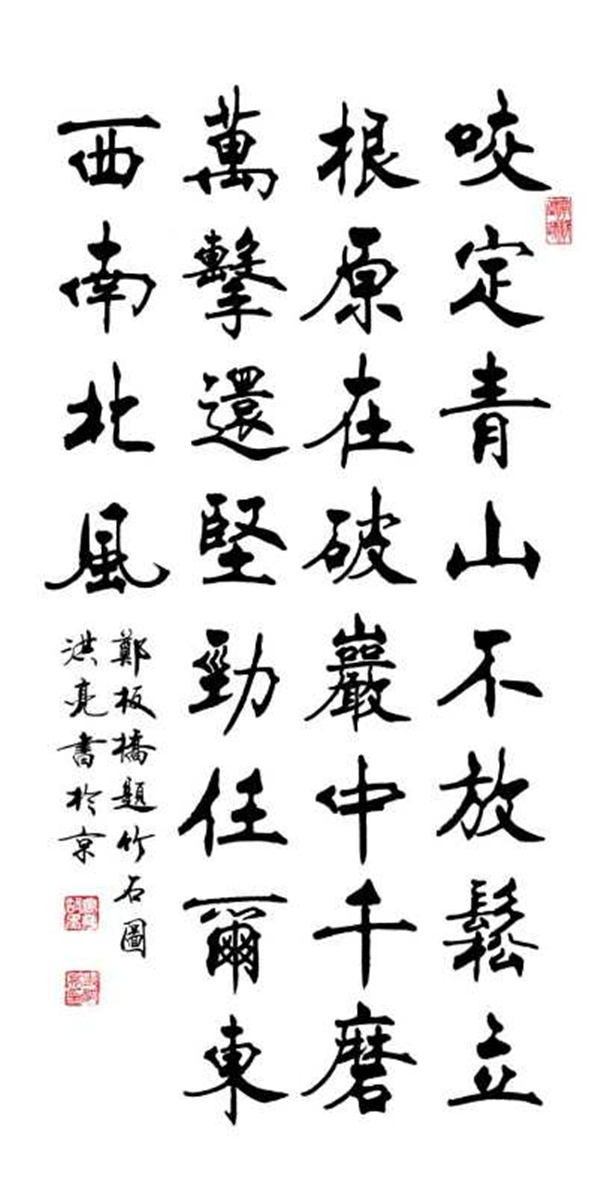 咬定青山不放鬆立
根原在破巖中千磨
萬擊還堅勁任爾東
西南北風
鄭板橋題竹石圖
洪亮書於京